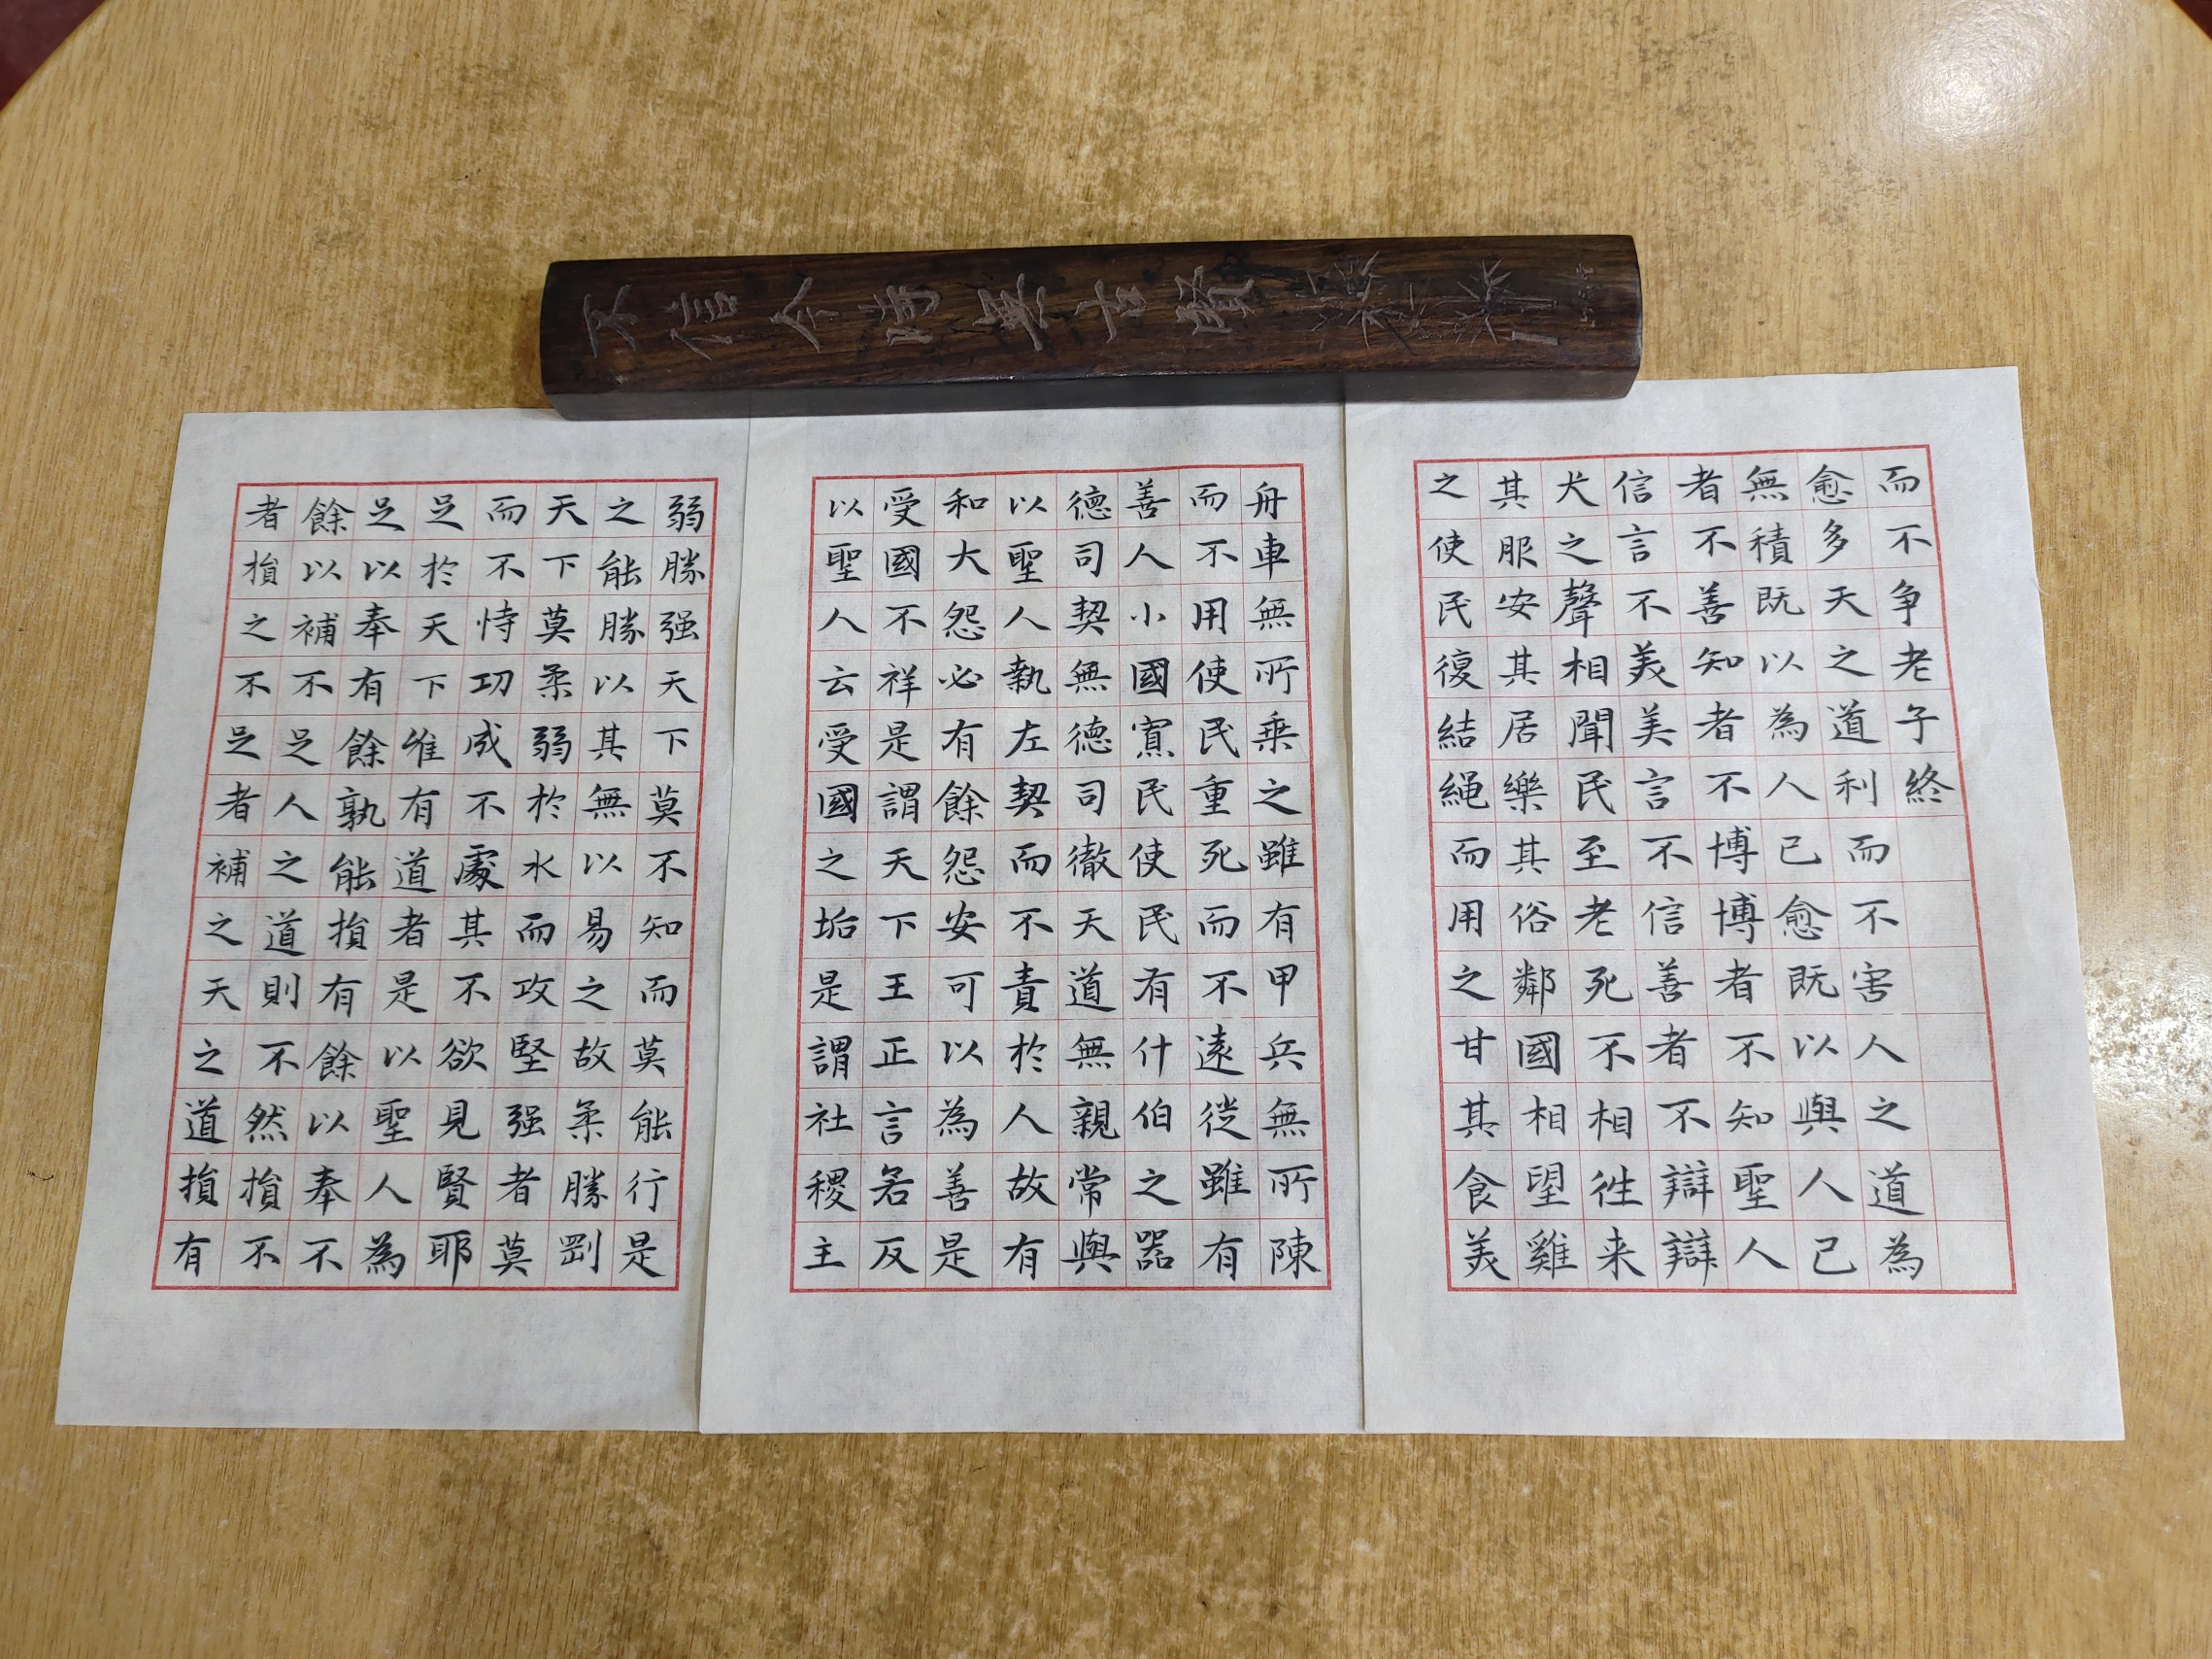 不信今時 古賢
者損之不足者補之天之道損有
餘以補不足人之道則不然損不
足以奉有餘孰能損有餘以奉不
足於天下唯有道者是以聖人為
而不恃功成不處其不欲見賢耶
天下莫柔弱於水而攻堅强者莫
之能勝以其無以易之故柔勝剛
弱勝强天下莫不知而莫能行是
以聖人云受國之垢是謂社稷主
受國不祥是謂天下王正言若反
和大怨必有餘怨安可以為善是
以聖人執左契而不責於人故有
德司契無德司徹天道無親常與
善人小國寡民使民有什伯之器
而不用使民重死而不遠徙雖有
舟車無所乗之雖有甲兵無所陳
之使民復結繩而用之甘其食美
其服安其居樂其俗鄰國相望雞
犬之聲相聞民至老死不相往来
信言不美美言不信善者不辯辯
者不善知者不博博者不知聖人
無積既以為人己愈既以與人己
愈多天之道利而不害人之道為
而不争老子終